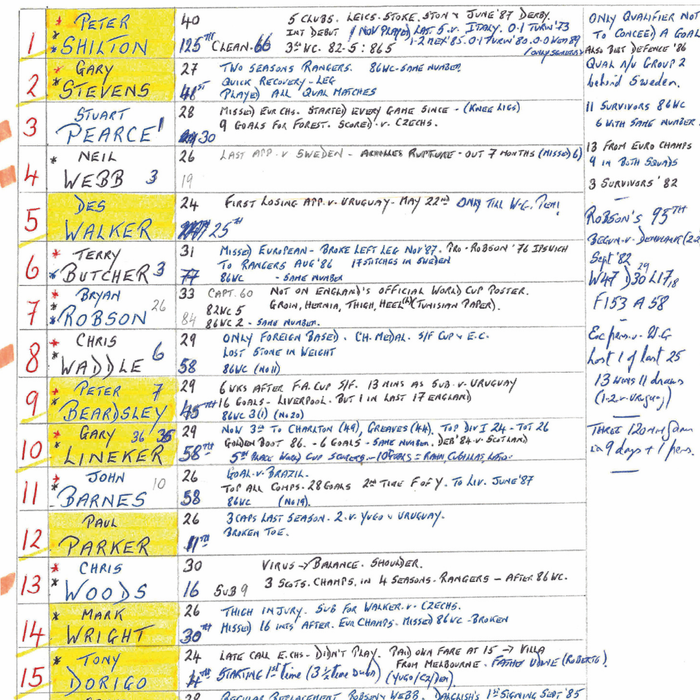 1 * PETER SHILTON
40 5 CLUBS. LEICS-STOKE. STON & JUNE '87 DERBY.
INT DEBUT
125TH CLEAN-66 3RD WC. 82-5 : 865
2 * GARY * STEVENS
27 TWO SEASONS RANGERS. 86WC-SAME NUMBER.
QUICK RECOVERY-LEG
48ST PLAYED ALL QUAL MATCHES
3 STUART PEARCE
28 MISSED EUR CHS. STARTED EVERY GAME SINCE - (KNEE LIGS)
30 9 GOALS FOR FOREST. SCORED. V. CZECHS.
4 * NEIL * WEBB 3
26 LAST APP. V SWEDEN - ACHILLES RUPTURE - OUT 7 MONTHS (MISSED 6)
19
5 DES WALKER
24 FIRST LOSING APP. V. URUGUAY - MAY 22ND ONLY TILL W.G.
25TH
6 * TERRY * BUTCHER 3
31 MISSED EUROPEAN - BROKE LEFT LEG NOV '87. PRO - ROBSON '76 IPSWICH
TO RANGERS AUG '86 17 STITCHES IN SWEDEN
77 86WC - SAME NUMBER
7 * BRYAN * ROBSON 26
33 CAPT. 60 NOT ON ENGLAND'S OFFICIAL WORLD CUP POSTER.
82WC 5 GROIN, HERNIA, THIGH, HEEL (TUNISIAN PAPER).
84 86WC 2 - SAME NUMBER.
8 * CHRIS * WADDLE 6
29 ONLY FOREIGN BASED. CH. MEDAL. S/F CUP & E.C.
LOST STONE IN WEIGHT
58 86WC (NO11)
9 * PETER 7 * BEARDSLEY
29 6 WKS AFTER F.A. CUP S/F. 13 MINS AS SUB. V. URUGUAY
16 GOALS - LIVERPOOL. BUT 1 IN LAST 17 ENGLAND)
45TH 86WC 3(1) (NO20)
10 * GARY 36 35 * LINEKER
29 NOW 3RD TO CHARLTON (49), GREAVES (44). TOP DIV I 24 - TOT 26
GOLDEN BOOT 86. - 6 GOALS - SAME NUMBER. DEB '84. V. SCOTLAND
58TH 5TH
11 * JOHN 10 * BARNES
26 GOAL. V. BRAZIL.
TOP ALL COMPS. 28 GOALS 2ND TIME F OF Y. TO LIV. JUNE '87
58 86WC (NO19).
12 PAUL PARKER
26 3 CAPS LAST SEASON. 2. V. YUGO & URUGUAY.
11TH BROKEN TOE.
13 * CHRIS * WOODS
30 VIRUS → BALANCE. SHOULDER.
16 SUB 9 3 SCOTS. CHAMPS. IN 4 SEASONS. RANGERS - AFTER 86WC.
14 * MARK * WRIGHT
26 THIGH INJURY. SUB FOR WALKER. V. CZECHS.
30TH MISSED 16 INTS AFTER. EUR CHAMPS. MISSED 86WC - BROKEN
15 * TONY * DORIGO
24 LATE CALL E.CHS - DIDN'T PLAY. PAID OWN FARE AT 15 → VILLA
FROM MELBOURNE. - FATHER UDINE (ROBERTO).
STARTING 1ST TIME (YUGO/CZ/DEN)
28 REGULAR REPLACEMENT ROBSON & WEBB. DALGLISH'S 1ST SIGNING SEPT '85
ONLY QUALIFIER NOT
TO CONCEDE A GOAL
ALSO BEST DEFENCE '86
QUAL A/V GROUP 2
behind Sweden.
11 SURVIVORS 86WC
6 WITH SAME NUMBER
13 FROM EURO CHAMPS
9 IN BOTH SQUADS
3 SURVIVORS '82
ROBSON'S 95TH
BEGUN. V. DENMARK (22
Sept '82
W47 D30 L17
F153 A 58
Lost 1 of last 25
13 wins 11 draws
(1-2. v. Uruguay)
THREE 120 min
in 9 days + 1 pens.